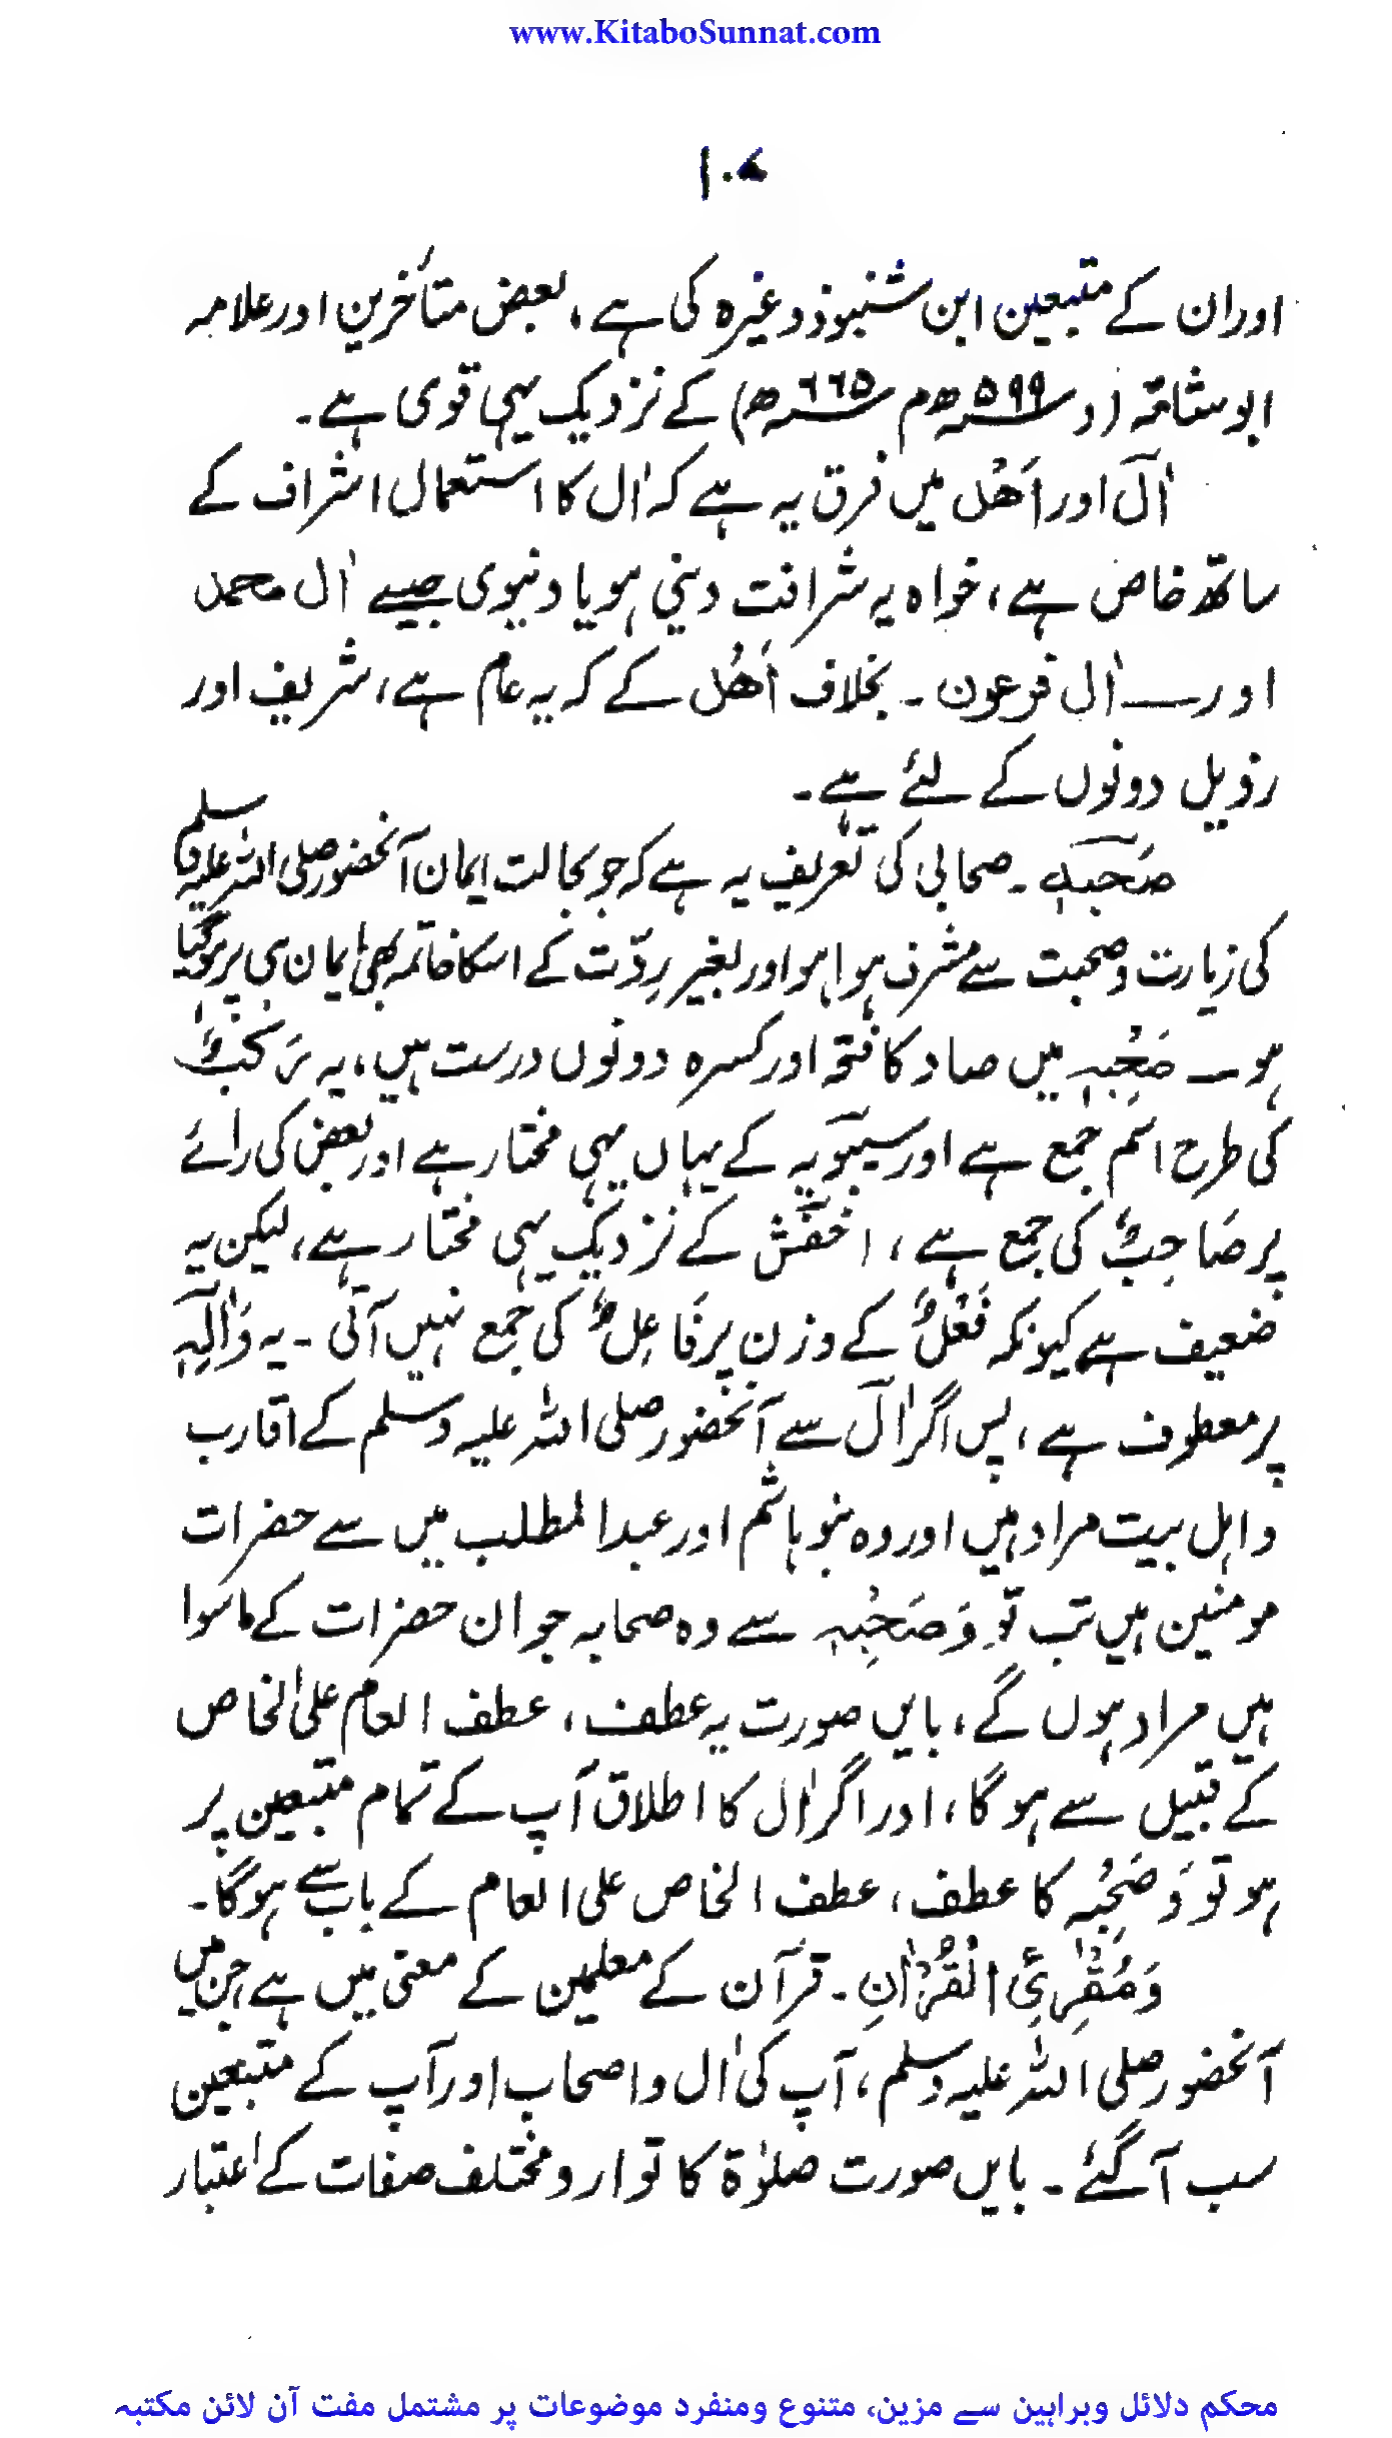 www.KitaboSunnat.com
اور ان کے متبعین ابن شنبوذ وغیرہ کی ہے، بعض متأخرین اور علامہ
ابوشامہ (و ۵۹۹ھ م ۶۶۵ھ) کے نزدیک یہی قوی ہے۔
اٰل اور اَھْل میں فرق یہ ہے کہ اٰل کا استعمال اشراف کے
ساتھ خاص ہے، خواہ یہ شرافت دینی ہو یا دنیوی جیسے اٰل محمد
اور اٰل فرعون ۔ بخلاف اَھْل کے کہ یہ عام ہے، شریف اور
رذیل دونوں کے لئے ہے۔
صَحْبِہٖ ۔ صحابی کی تعریف یہ ہے کہ جو بحالت ایمان آنحضور صلی اللہ علیہ وسلم
کی زیارت وصحبت سے مشرف ہوا ہو اور بغیر رِدّت کے اسکا خاتمہ بھی ایمان ہی پر ہوگیا
ہو ۔ صَحْبِہٖ میں صاد کا فتحہ اور کسرہ دونوں درست ہیں، یہ رَکْبٌ
کی طرح اسم جمع ہے اور سیبویہ کے یہاں یہی مختار ہے اور بعض کی رائے
پر صَاحِبٌ کی جمع ہے، اخفش کے نزدیک یہی مختار ہے، لیکن یہ
ضعیف ہے کیونکہ فَعْلٌ کے وزن پر فَاعِلٌ کی جمع نہیں آتی ۔ یہ وَاٰلِہٖ
پر معطوف ہے، پس اگر اٰل سے آنحضور صلی اللہ علیہ وسلم کے اقارب
و اہل بیت مراد ہیں اور وہ بنو ہاشم اور عبد المطلب میں سے حضرات
مومنین ہیں تب تو وَصَحْبِہٖ سے وہ صحابہ جو ان حضرات کے ماسوا
ہیں مراد ہوں گے، بایں صورت یہ عطف، عطف العام علی الخاص
کے قبیل سے ہوگا، اور اگر اٰل کا اطلاق آپ کے تمام متبعین پر
ہو تو وَصَحْبِہٖ کا عطف، عطف الخاص علی العام کے باب سے ہوگا۔
وَمُقْرِئِ الْقُرْاٰنِ ۔ قرآن کے معلمین کے معنی میں ہے جن میں
آنحضور صلی اللہ علیہ وسلم، آپ کی اٰل و اصحاب اور آپ کے متبعین
سب آگئے ۔ بایں صورت صلوٰۃ کا توارد مختلف صفات کے اعتبار
محکم دلائل وبراہین سے مزین، متنوع ومنفرد موضوعات پر مشتمل مفت آن لائن مکتبہ